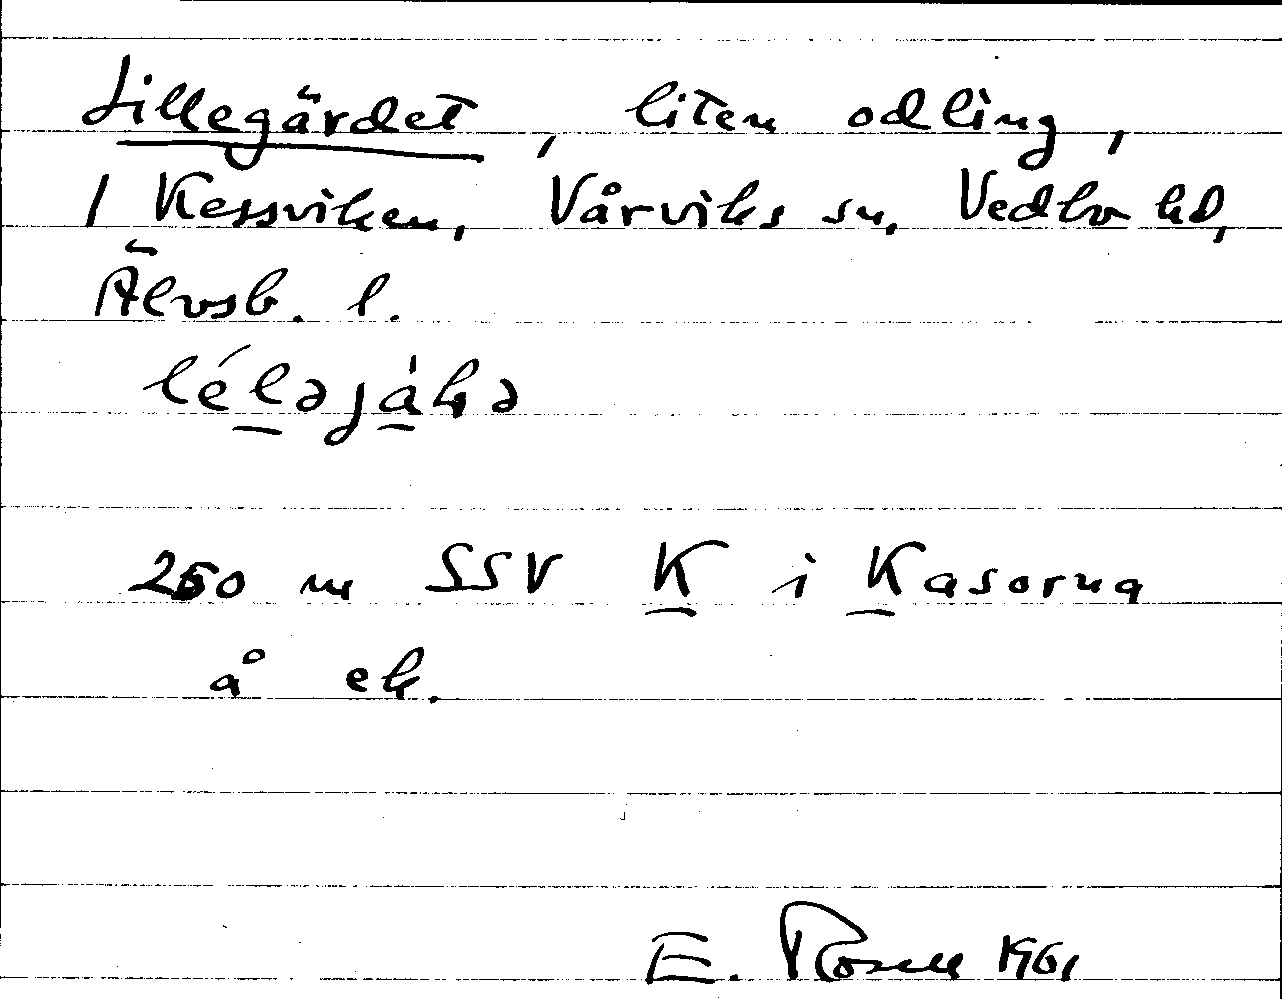 Lillegärdet, liten odling,
1 Kessviken, Vårviks sn, Vedbo hd,
Älvsb. l.
250 m SSV K i Kasorna
å ek.
E. Rosell 1961